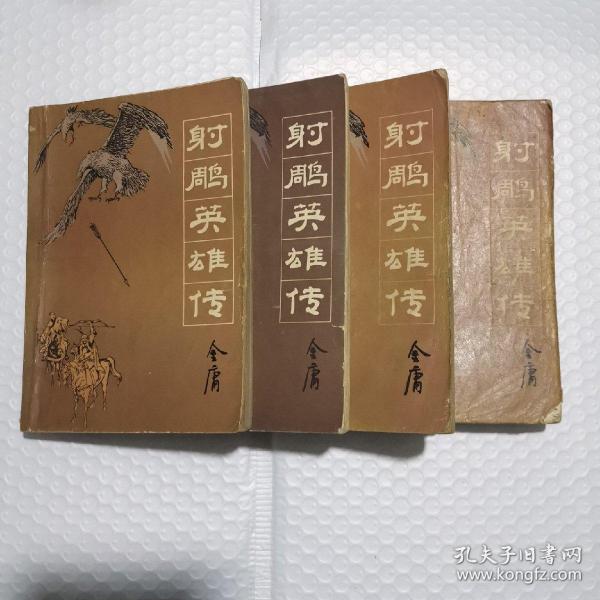 射雕英雄传
金庸
射雕英雄传
金庸
射雕英雄传
金庸
射雕英雄传
金庸
孔夫子旧書网
www.kongfz.com